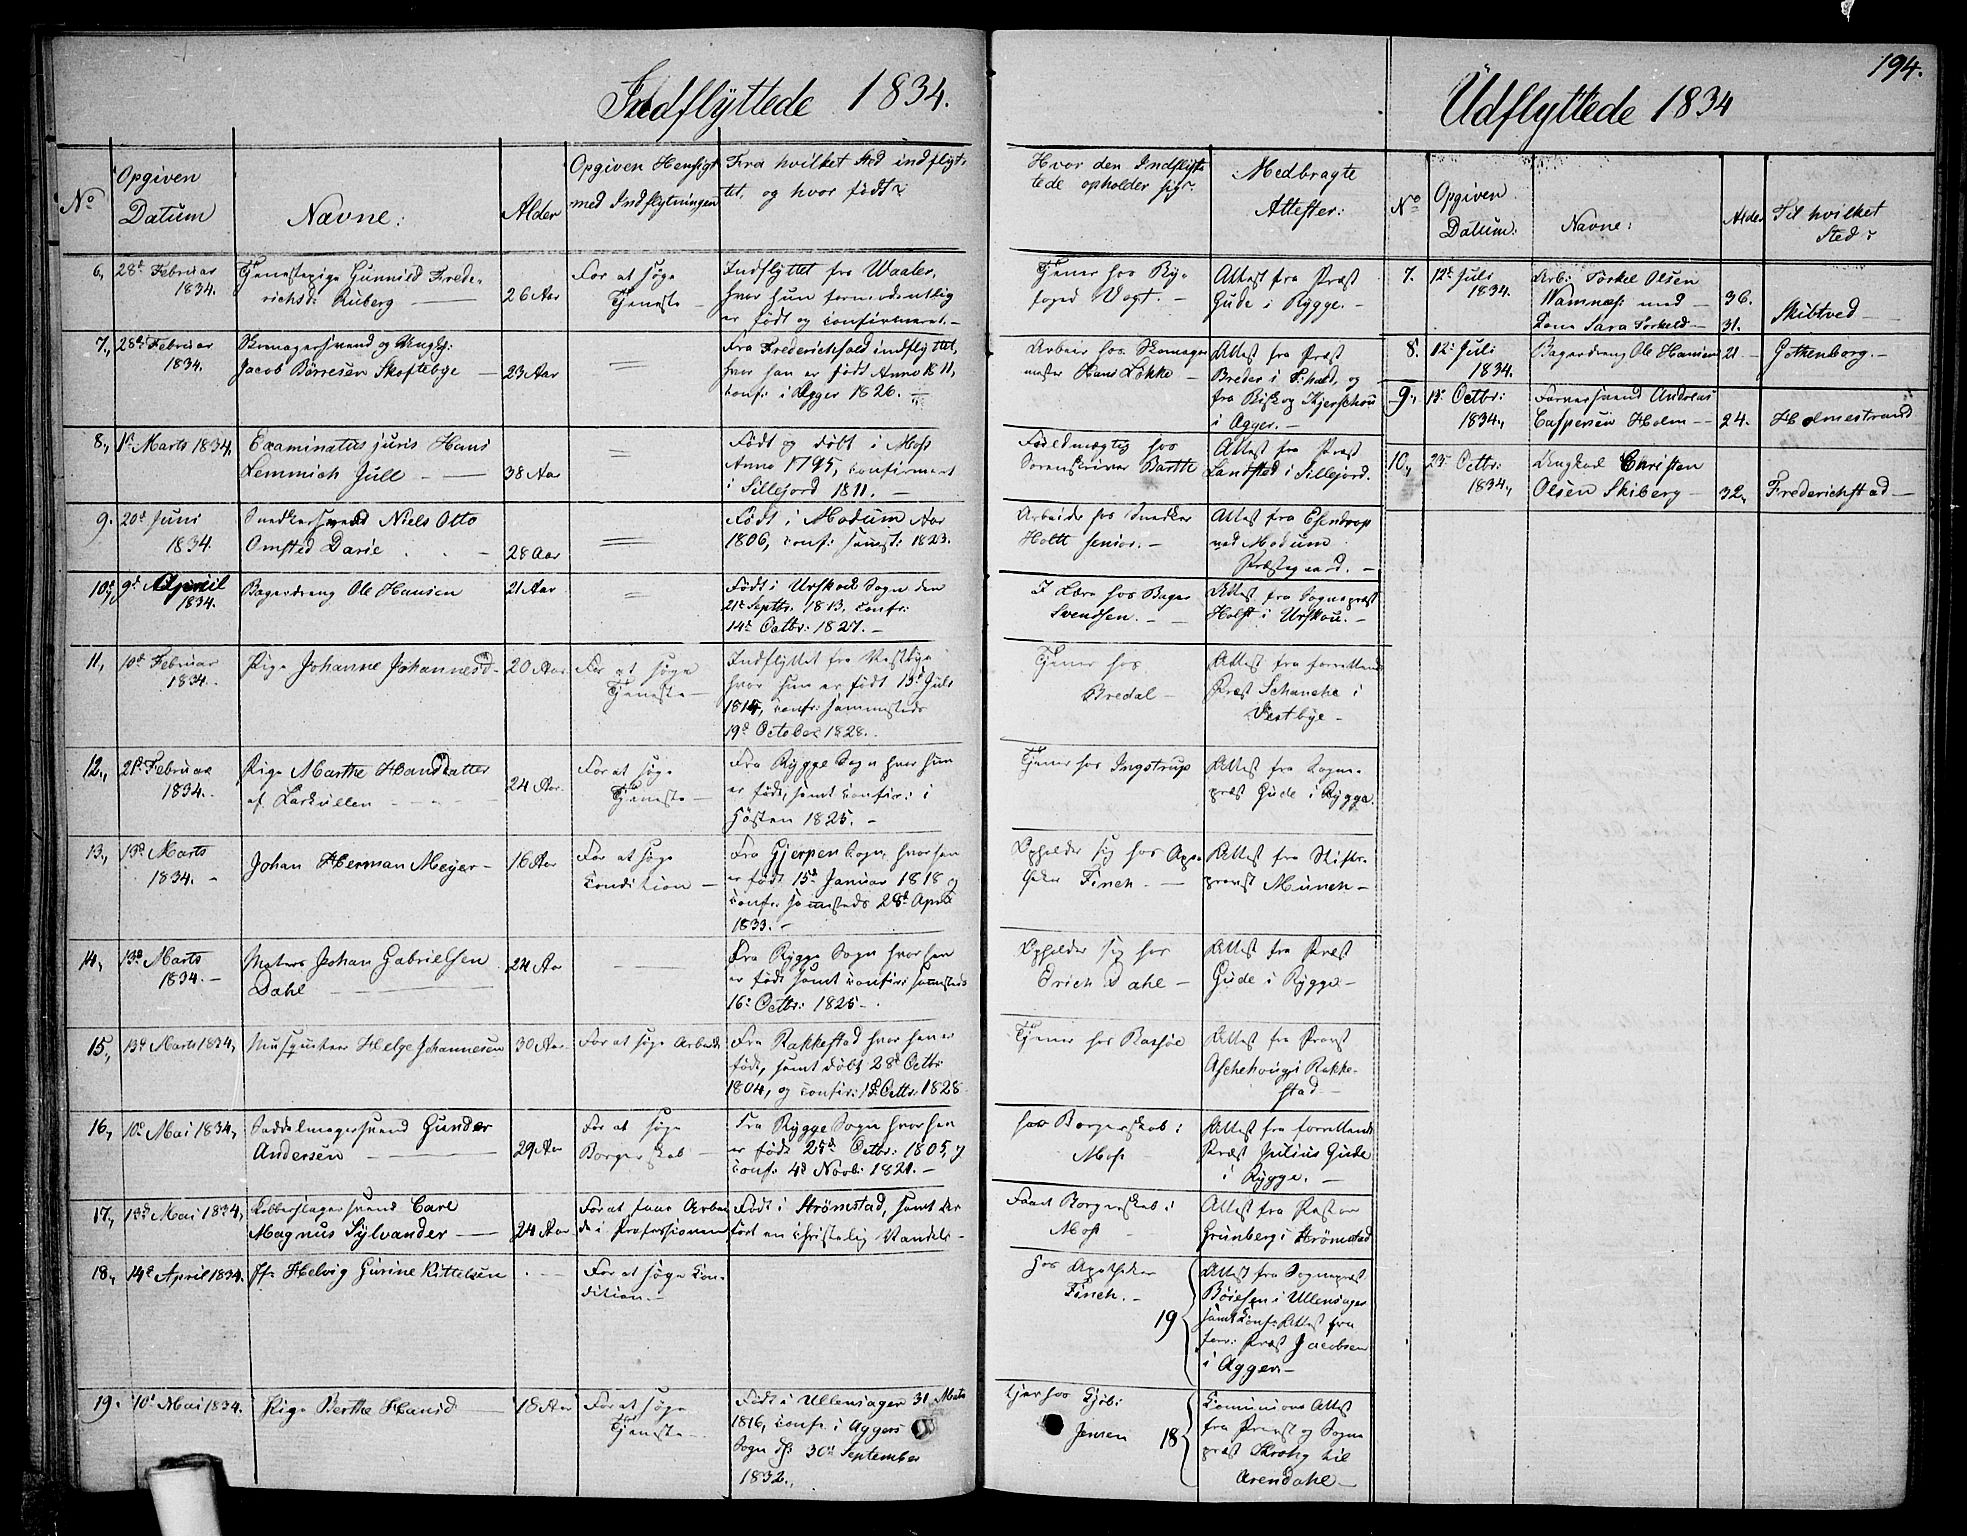 194.
Indflÿttede 1834.
Udflyttede 1834
No
Opgiven
Datum
Navne:
Alder
Opgiven Hensigt
med Indflytningen
Fra hvilket Sted indflyt-
tet, og hvor født?
Hvor den Indflyt-
tede opholder sig?
Medbragte
Attester:
6, 28d Februar
1834.
Tjenestepige Gunnild Frede-
richsd: Ruberg
26 Aar
For at søge
Tjeneste
Indflyttet fra Waaler,
hvor hun formodentlig
er født og confirmeret.
Tjener hos By-
foged Vogt.
Attest fra Præst
Gude i Rygge.
7, 28d Februar
1834.
Skomagersvend og
Jacob Børresen Skoftebye
23 Aar
Fra Frederichshald indflyttet,
hvor han er født Anno 1811,
conf: i Agger 1826.
Arbeider hos Skomager-
mester Hans Løkke
Attest fra Præst
Breder i og
fra Biskop
i Agger.
8, 1ste Marts 1834,
Examinatus juris Hans
Lemmich Jull
38 Aar
Født og døbt i Moss
Anno 1795, confirmeret
i Sillejord 1811.
Fuldmægtig hos
Sorenskriver Barth
Attest fra Præst
Landsted i Sillejord.
9. 20d Juni
1834.
Snedkersvend Niels Otto
Omsted Darie
28 Aar
Født i Modum Aar
1806, conf: samst: 1823.
Arbeider hos Snedker
Holtt senior.
Attest fra Esendrop
ved Modum
Præstegaard.
10, 9d April
1834.
Bagerdreng Ole Hansen
21 Aar
Født i Urskoug Sogn den
21d Septbr: 1813. conf:
14d Octbr: 1827.
I Lære hos Bager
Svendsen.
Attest fra Sognepræst
Holst i Urskou.
11, 10d Februar
1834.
Pige Johanne Johannesd
20 Aar
For at søge
Tjeneste
Indflyttet fra Vestbye
hvor hun er født 13d Juli
1814, conf: sammesteds
19d October 1828.
Tjener hos
Bredal
Attest fra forrettende
Præst Schanche i
Vestbye
12, 21d Februar
1834.
Pige Marthe Hansdatter
af Larkullen
24 Aar.
For at søge
Tjeneste
Fra Rygge Sogn hvor hun
er født, samt confir: i
Høsten 1825.
Tjener hos Ingstrup
Attest fra Sogne-
præst Gude i Rygge.
13, 13d Marts
1834.
Johan Herman Meyer
16 Aar
For at søge
Condition
Fra Gjerpen Sogn, hvor han
er født 15d Januar 1818 og
conf: sammesteds 28d April
1833.
Opholder sig hos Apo-
theker Finch.
Attest fra Stifts-
provst Munch
14, 13d Marts
1834.
Matros Johan Gabrielsen
Dahl
24 Aar
Fra Rygge Sogn hvor han
er født samt confir: sammesteds
16: Octbr: 1825.
Opholder sig hos
Erich Dahl
Attest fra Præst
Gude i Rygge
15, 13d Marts 1834,
Musqueteer Helge Johannesen
30 Aar
For at søge Arbeide
Fra Rakkestad hvor han er
født, samt døbt 28d Octbr
1804, og confir: Octbr: 1828
Tjener hos Bassøe
Attest fra Provst
Aschehoug i Rakke-
stad
16, 10d Mai 1834,
Saddelmagersvend Gunder
Andersen
29 Aar
For at søge
Borgerskab
Fra Rygge Sogn hvor han
er født 25d Octbr: 1805, og
conf: 4d Novb: 1821.
har Borgerskab i
Moss
Attest fra forrettende
Præst Julius Gude
i Rygge.
17, 13d Mai 1834,
Kobberslagersvend Carl
Magnus Sylvander
24 Aar
For at faae Arbei-
de i Professionen
Født i Strømstad, samt der
ført en christelig Vandel
Faaet Borgerskab i
Moss
Attest fra Pastor
Grünberg i Strømstad
18, 14d April 1834.
Jfr Helvig Gurine Kittelsen
For at søge Con-
dition.
hos Apotheker
Finch.
19
Attest fra Sognepræst
Bøiesen i Ullensager
samt Conf: Attest fra
forr: Præst Jacobsen
i Agger
19. 10d Mai 1834.
Pige Berthe Hansd
18 Aar
For at søge
Tjeneste
Født i Ullensager 31 Marts
1816, conf: i Aggers
Sogn d. 30te September
1832.
Tjen: hos Kjøb:
Jensen
18
Communions Attest
fra Provst og Sogne-
præst Krohg til
Arendahl
No
Opgiven
Datum:
Navne:
Alder
Til hvilket
Sted?
7. 12t Juli
1834.
Arb: Torkel Olsen
Wamnæs med
Kone Sara Torkelsd
36.
31.
Skibtved
8. 12: Juli
1834.
Bagerdreng Ole Hansen
21
Gothenborg.
9, 15 Octbr:
1834,
Farversvend Andreas
Caspersen Holm
24.
Holmestrand
10, 23 Octbr:
1834,
Ungkarl Christen
Olsen Skiberg
32,
Frederichstad